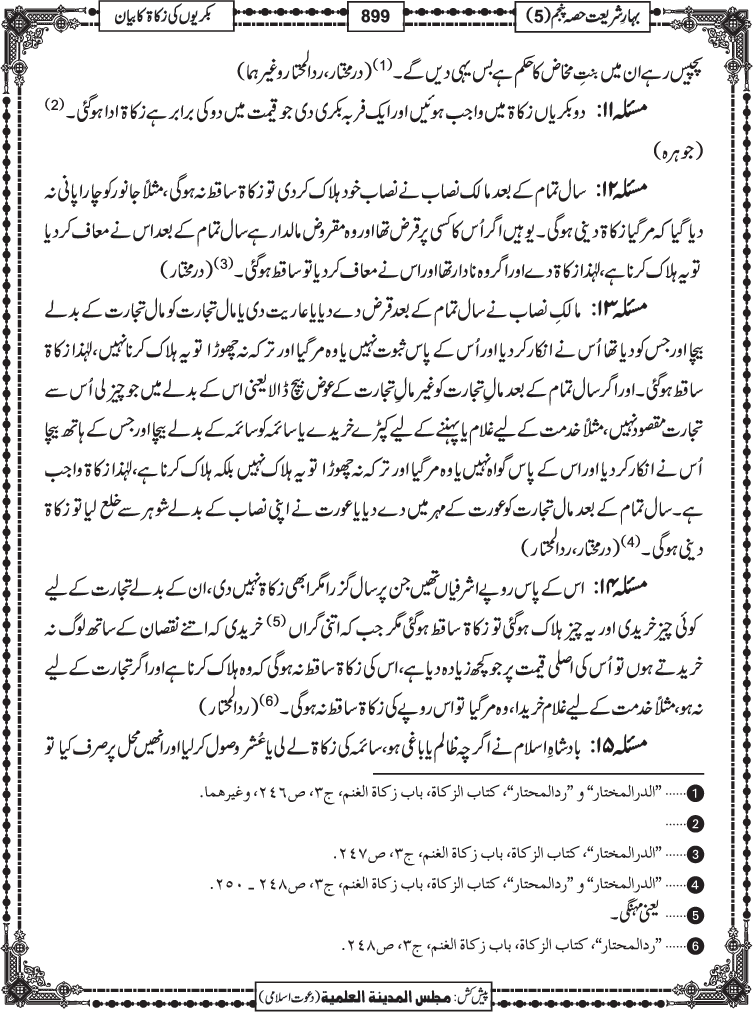 بہارِ شریعت حصہ پنجم (5)
899
بکریوں کی زکاۃ کا بیان
پچپیس رہے ان میں بنتِ مخاض کا حکم ہے بس یہی دیں گے۔ (1) (درمختار، ردالمحتار وغیرہما)
مسئلہ ۱۱: دو بکریاں زکاۃ میں واجب ہوئیں اور ایک فربہ بکری دی جو قیمت میں دو کی برابر ہے زکاۃ ادا ہوگئی۔ (2)
(جوہرہ)
مسئلہ ۱۲: سال تمام کے بعد مالک نصاب نے نصاب خود ہلاک کر دی تو زکاۃ ساقط نہ ہوگی، مثلاً جانور کو چارا پانی نہ
دیا گیا کہ مر گیا زکاۃ دینی ہوگی۔ یوہیں اگر اُس کا کسی پر قرض تھا اور وہ مقروض مالدار ہے سال تمام کے بعد اس نے معاف کر دیا
تو یہ ہلاک کرنا ہے، لہٰذا زکاۃ دے اور اگر وہ نادار تھا اور اس نے معاف کر دیا تو ساقط ہوگئی۔ (3) (درمختار)
مسئلہ ۱۳: مالکِ نصاب نے سال تمام کے بعد قرض دے دیا یا عاریت دی یا مال تجارت کو مال تجارت کے بدلے
بیچا اور جس کو دیا تھا اُس نے انکار کر دیا اور اُس کے پاس ثبوت نہیں یا وہ مر گیا اور ترکہ نہ چھوڑا تو یہ ہلاک کرنا نہیں، لہٰذا زکاۃ
ساقط ہوگئی۔ اور اگر سال تمام کے بعد مالِ تجارت کو غیر مالِ تجارت کے عوض بیچ ڈالا یعنی اس کے بدلے میں جو چیز لی اُس سے
تجارت مقصود نہیں، مثلاً خدمت کے لیے غلام یا پہننے کے لیے کپڑے خریدے یا سائمہ کو سائمہ کے بدلے بیچا اور جس کے ہاتھ بیچا
اُس نے انکار کر دیا اور اس کے پاس گواہ نہیں یا وہ مر گیا اور ترکہ نہ چھوڑا تو یہ ہلاک نہیں بلکہ ہلاک کرنا ہے، لہٰذا زکاۃ واجب
ہے۔ سال تمام کے بعد مال تجارت کو عورت کے مہر میں دے دیا یا عورت نے اپنی نصاب کے بدلے شوہر سے خلع لیا تو زکاۃ
دینی ہوگی۔ (4) (درمختار، ردالمحتار)
مسئلہ ۱۴: اس کے پاس روپے اشرفیاں تھیں جن پر سال گزرا مگر ابھی زکاۃ نہیں دی، ان کے بدلے تجارت کے لیے
کوئی چیز خریدی اور یہ چیز ہلاک ہوگئی تو زکاۃ ساقط ہوگئی مگر جب کہ اتنی گراں (5) خریدی کہ اتنے نقصان کے ساتھ لوگ نہ
خریدتے ہوں تو اُس کی اصلی قیمت پر جو کچھ زیادہ دیا ہے، اس کی زکاۃ ساقط نہ ہوگی کہ وہ ہلاک کرنا ہے اور اگر تجارت کے لیے
نہ ہو، مثلاً خدمت کے لیے غلام خریدا، وہ مر گیا تو اس روپے کی زکاۃ ساقط نہ ہوگی۔ (6) (ردالمحتار)
مسئلہ ۱۵: بادشاہِ اسلام نے اگرچہ ظالم یا باغی ہو، سائمہ کی زکاۃ لے لی یا عُشر وصول کر لیا اور انھیں محل پر صرف کیا تو
1 ...... ”الدرالمختار“ و ”ردالمحتار“، کتاب الزکاة، باب زکاة الغنم، ج۳، ص۲٤٦، وغیرهما.
2 ......
3 ...... ”الدرالمختار“، کتاب الزکاة، باب زکاة الغنم، ج۳، ص۲٤۷.
4 ...... ”الدرالمختار“ و ”ردالمحتار“، کتاب الزکاة، باب زکاة الغنم، ج۳، ص۲٤۸ ـ ۲۵۰.
5 ...... یعنی مہنگی۔
6 ...... ”ردالمحتار“، کتاب الزکاة، باب زکاة الغنم، ج۳، ص۲٤۸.
پیش کش: مجلس المدينة العلمية (دعوت اسلامی)